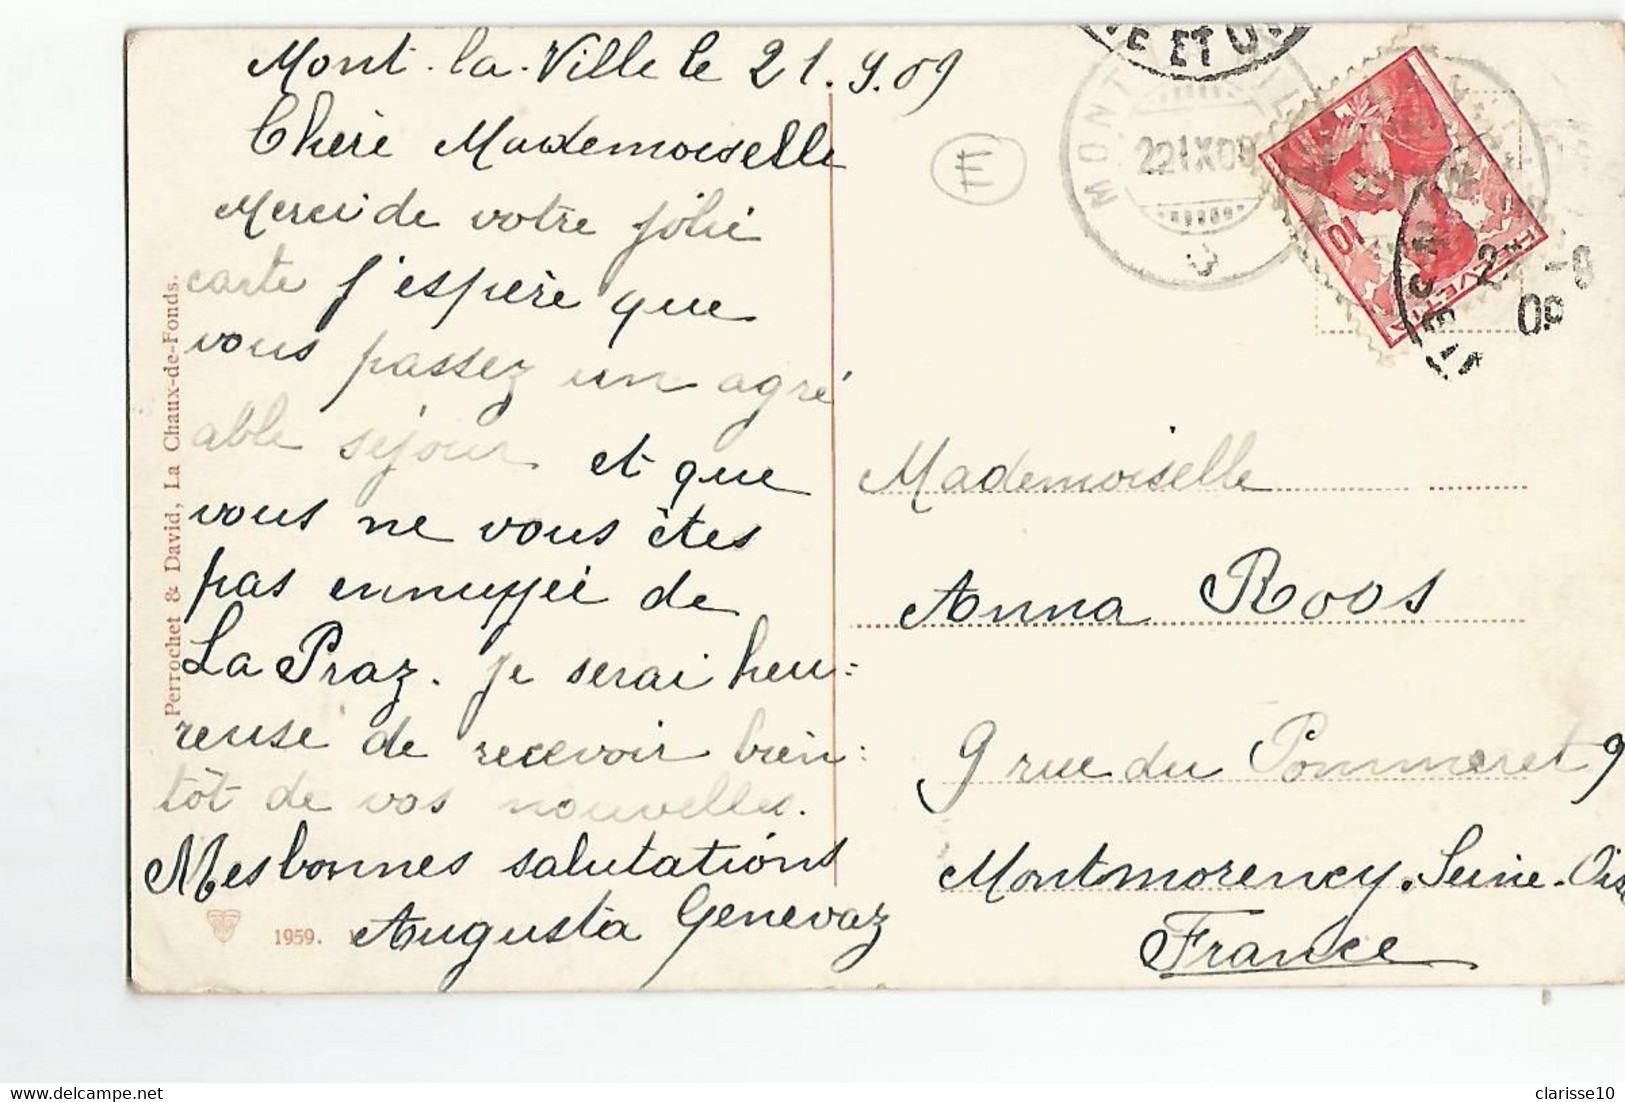 Mont-la-Ville le 21.9.09
Chère Mademoiselle
Merci de votre jolie
carte j'espère que
vous passez un agré
able séjour et que
vous ne vous êtes
pas ennuyée de
La Praz. je serai heu=
reuse de recevoir bien=
tôt de vos nouvelles.
Mes bonnes salutations
Augusta Genevaz
Perrochet & David, La Chaux-de-Fonds.
1959.
E
ET
MONT
22 IX 09
10
09
Mademoiselle
Anna Roos
9 rue du Pommeret 9
Montmorency. Seine-Oise
France
delcampe.net
clarisse10